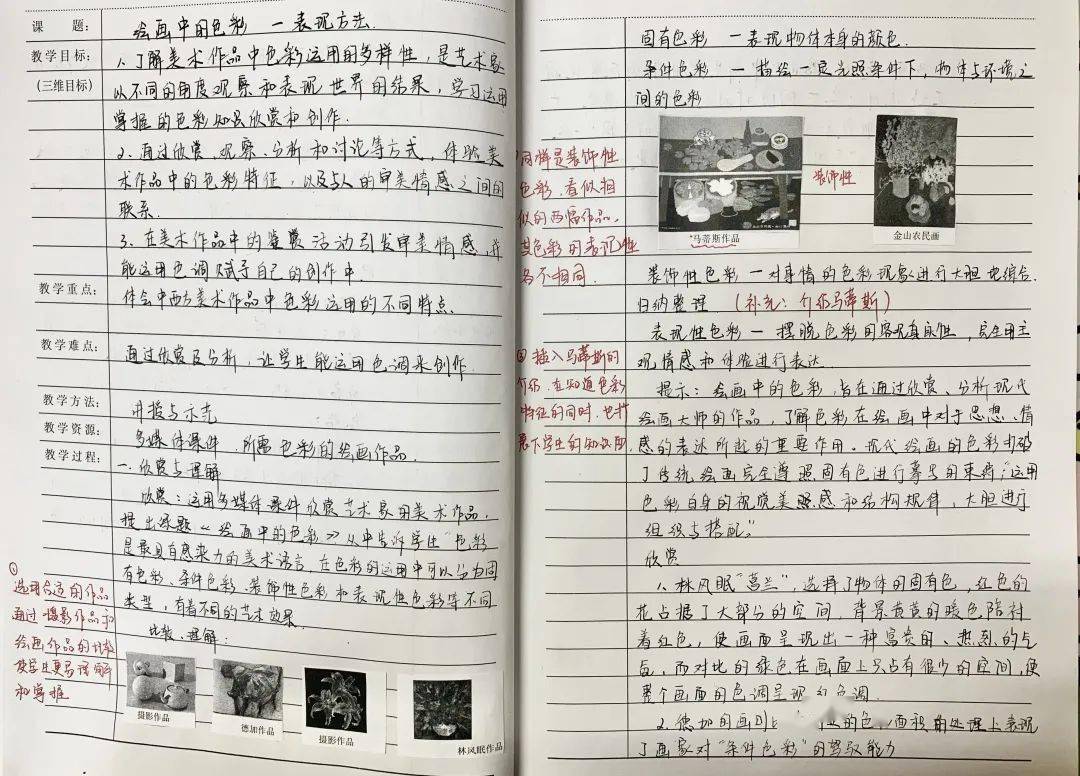 课 题： 绘画中的色彩 —表现方法.
教学目标： 1、了解美术作品中色彩运用的多样性，是艺术家
(三维目标) 以不同的角度观察和表现世界的结果，学习运用
掌握的色彩知识欣赏和创作.
2、通过欣赏、观察、分析和讨论等方式，体验美
术作品中的色彩特征，以及与人的审美情感之间的
联系.
3、在美术作品中的鉴赏活动引发审美情感，并
能运用色调赋予自己的创作中.
教学重点： 体会中西方美术作品中色彩运用的不同特点.
教学难点： 通过欣赏及分析，让学生能运用色调来创作.
教学方法： 讲授与示范
教学资源： 多媒体课件、所需色彩的绘画作品.
教学过程： 一、欣赏与理解
欣赏：运用多媒体课件欣赏艺术家的美术作品，
提出课题《绘画中的色彩》从中告诉学生“色彩
是最具有感染力的美术语言，在色彩的运用中可以分为固
有色彩、条件色彩、装饰性色彩和表现性色彩等不同
类型，有着不同的艺术效果.
比较、理解：
①
选用合适的作品
通过摄影作品和
绘画作品的比较
使学生更易理解
和掌握
摄影作品
德加作品
摄影作品
林风眠作品
固有色彩 —表现物体本身的颜色.
条件色彩 —描绘一定光照条件下，物体与环境之
间的色彩
同样是装饰性
色彩.看似相
似的两幅作品，
其色彩的表现性
各不相同.
马蒂斯作品
装饰性
金山农民画
装饰性色彩—对事情的色彩现象进行大胆地综合.
归纳整理 (补充：介绍马蒂斯)
表现性色彩 — 摆脱色彩的客观真实性，完全用主
观情感和体验进行表达.
②插入马蒂斯的
介绍.在知道色彩
特征的同时.也扩
展下学生的知识面.
提示：绘画中的色彩，旨在通过欣赏、分析现代
绘画大师的作品，了解色彩在绘画中对于思想、情
感的表述所起的重要作用。现代绘画的色彩打破
了传统绘画完全遵照固有色进行摹写的束缚；“运用
色彩自身的视觉美感和结构规律，大胆进行
组织与搭配”
欣赏
1、林风眠“菖兰”，选择了物体的固有色，红色的
花占据了大部分的空间，背景黄黄的暖色陪衬
着红色，使画面呈现出一种富贵的、热烈的气
氛，而对比的绿色在画面上只占有很少的空间，使
整个画面的色调呈现红色调.
2、德加的画 的色，面积的处理上表现
了画家对“条件色彩”的驾驭能力